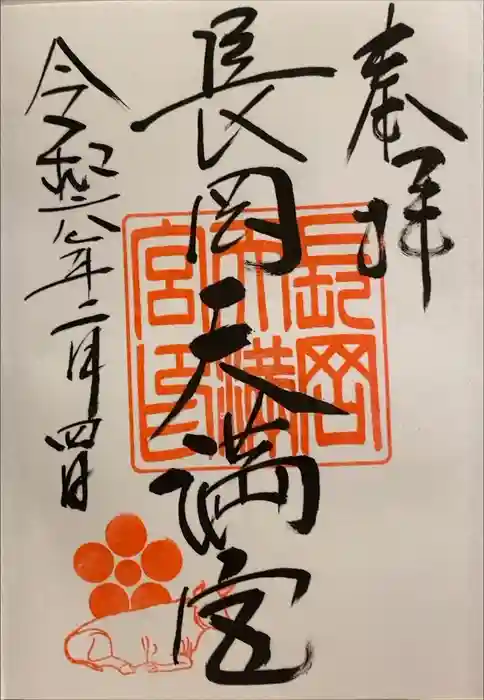 奉拝
長岡天満宮
長岡
天満
宮印
令和六年二月四日